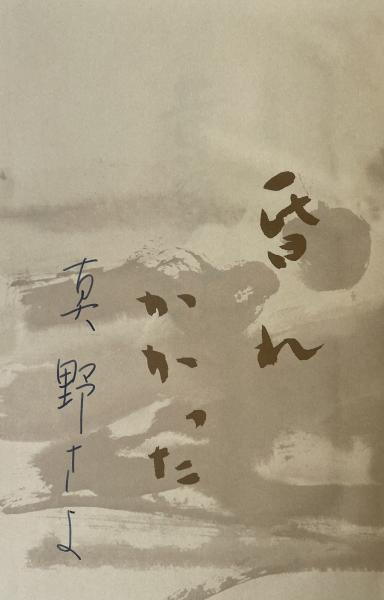 昏れ
かかった
真野さよ